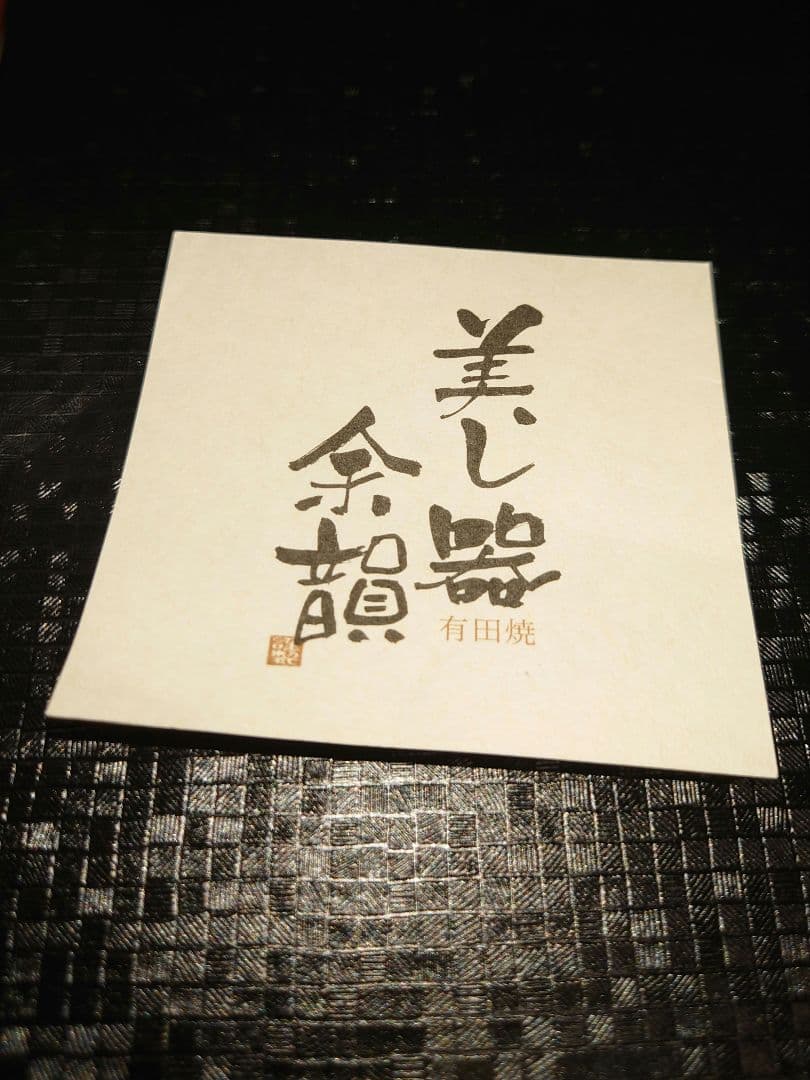 美し器
余韻
有田焼